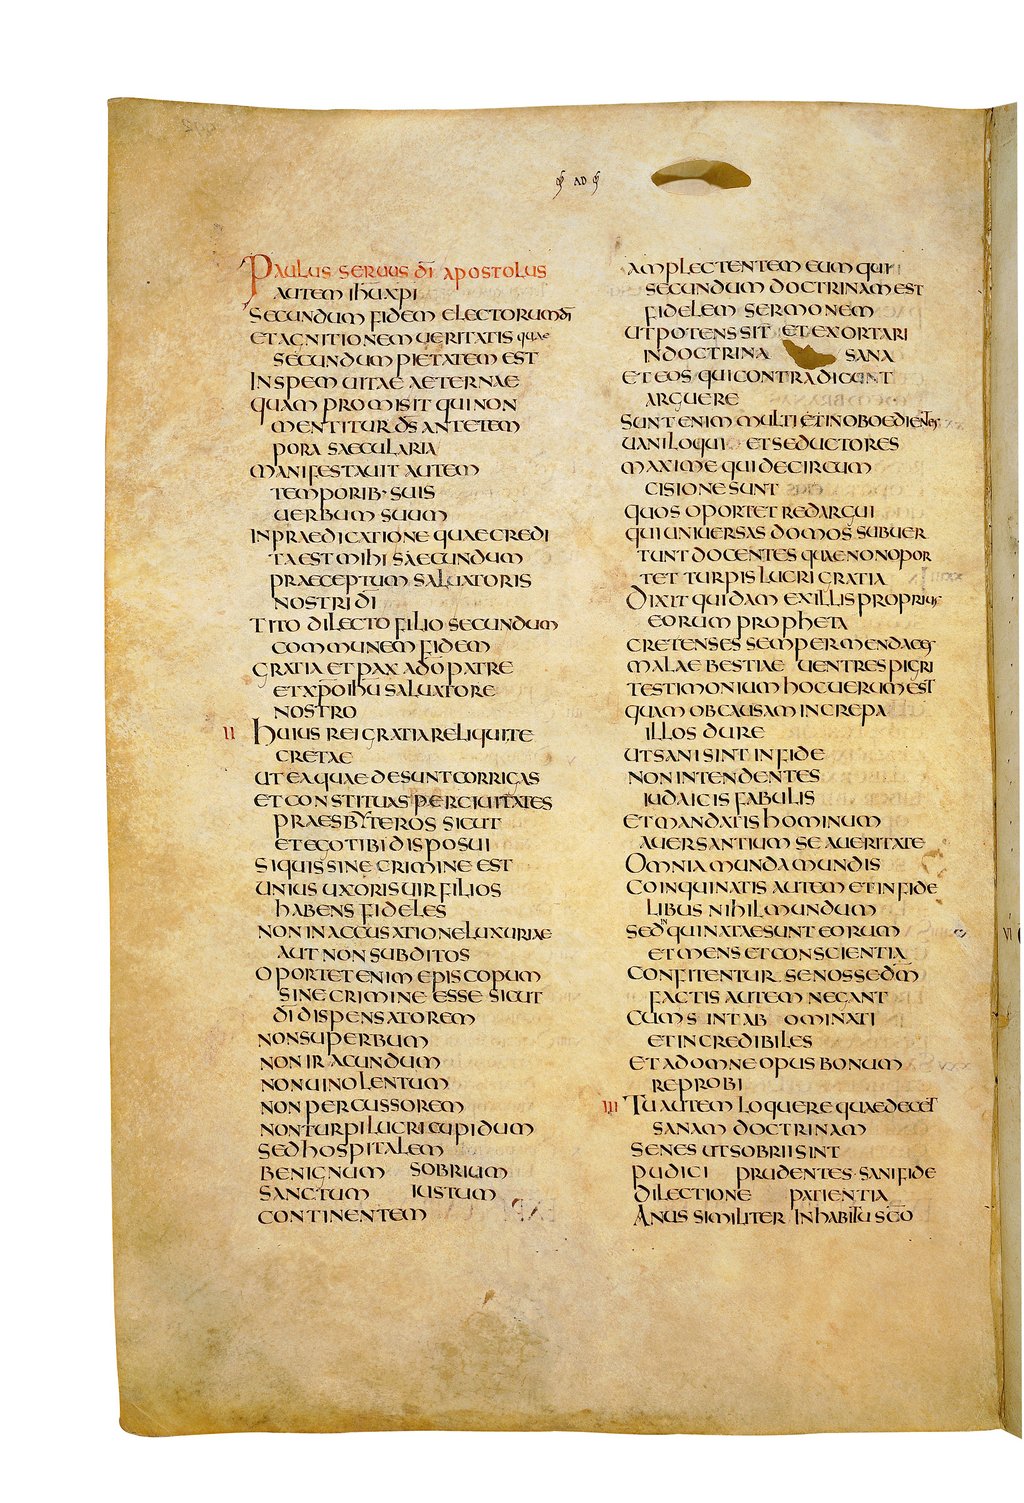 AD
PAULUS SERUUS D̄I APOSTOLUS
AUTEM IHŪ XPI
SECUNDUM FIDEM ELECTORUM D̄I
ET AGNITIONEM UERITATIS QUAE
SECUNDUM PIETATEM EST
IN SPEM UITAE AETERNAE
QUAM PROMISIT QUI NON
MENTITUR D̄S ANTE TEM
PORA SAECULARIA
MANIFESTAUIT AUTEM
TEMPORIB· SUIS
UERBUM SUUM
IN PRAEDICATIONE QUAE CREDI
TA EST MIHI SAECUNDUM
PRAECEPTUM SALUATORIS
NOSTRI D̄I
TITO DILECTO FILIO SECUNDUM
COMMUNEM FIDEM
GRATIA ET PAX A D̄O PATRE
ET XP̄O IHŪ SALUATORE
NOSTRO
II HUIUS REI GRATIA RELIQUI TE
CRETAE
UT EA QUAE DESUNT CORRIGAS
ET CONSTITUAS PER CIUITATES
PRAESBYTEROS SICUT
ET EGO TIBI DISPOSUI
SI QUIS SINE CRIMINE EST
UNIUS UXORIS UIR FILIOS
HABENS FIDELES
NON IN ACCUSATIONE LUXURIAE
AUT NON SUBDITOS
OPORTET ENIM EPISCOPUM
SINE CRIMINE ESSE SICUT
D̄I DISPENSATOREM
NON SUPERBUM
NON IRACUNDUM
NON UINOLENTUM
NON PERCUSSOREM
NON TURPI LUCRI CUPIDUM
SED HOSPITALEM
BENIGNUM SOBRIUM
SANCTUM IUSTUM
CONTINENTEM
AMPLECTENTEM EUM QUI
SECUNDUM DOCTRINAM EST
FIDELEM SERMONEM
UT POTENS SIT ET EXORTARI
IN DOCTRINA SANA
ET EOS QUI CONTRADICUNT
ARGUERE
SUNT ENIM MULTI ET INOBOEDIENTES
UANILOQUI ET SEDUCTORES
MAXIME QUI DE CIRCUM
CISIONE SUNT
QUOS OPORTET REDARGUI
QUI UNIUERSAS DOMOS SUBUER
TUNT DOCENTES QUAE NON OPOR
TET TURPIS LUCRI GRATIA
DIXIT QUIDAM EX ILLIS PROPRIUS
EORUM PROPHETA
CRETENSES SEMPER MENDACES
MALAE BESTIAE UENTRES PIGRI
TESTIMONIUM HOC UERUM EST
QUAM OB CAUSAM INCREPA
ILLOS DURE
UT SANI SINT IN FIDE
NON INTENDENTES
IUDAICIS FABULIS
ET MANDATIS HOMINUM
AUERSANTIUM SE A UERITATE
OMNIA MUNDA MUNDIS
COINQUINATIS AUTEM ET INFIDE
LIBUS NIHIL MUNDUM
SED INQUINATAE SUNT EORUM
ET MENS ET CONSCIENTIA
CONFITENTUR SE NOSSE D̄M
FACTIS AUTEM NEGANT
CUM S INT AB OMINATI
ET INCREDIBILES
ET AD OMNE OPUS BONUM
REPROBI
III TU AUTEM LOQUERE QUAE DECET
SANAM DOCTRINAM
SENES UT SOBRII SINT
PUDICI PRUDENTES· SANI FIDE
DILECTIONE PATIENTIA
ANUS SIMILITER IN HABITU S̄C̄O